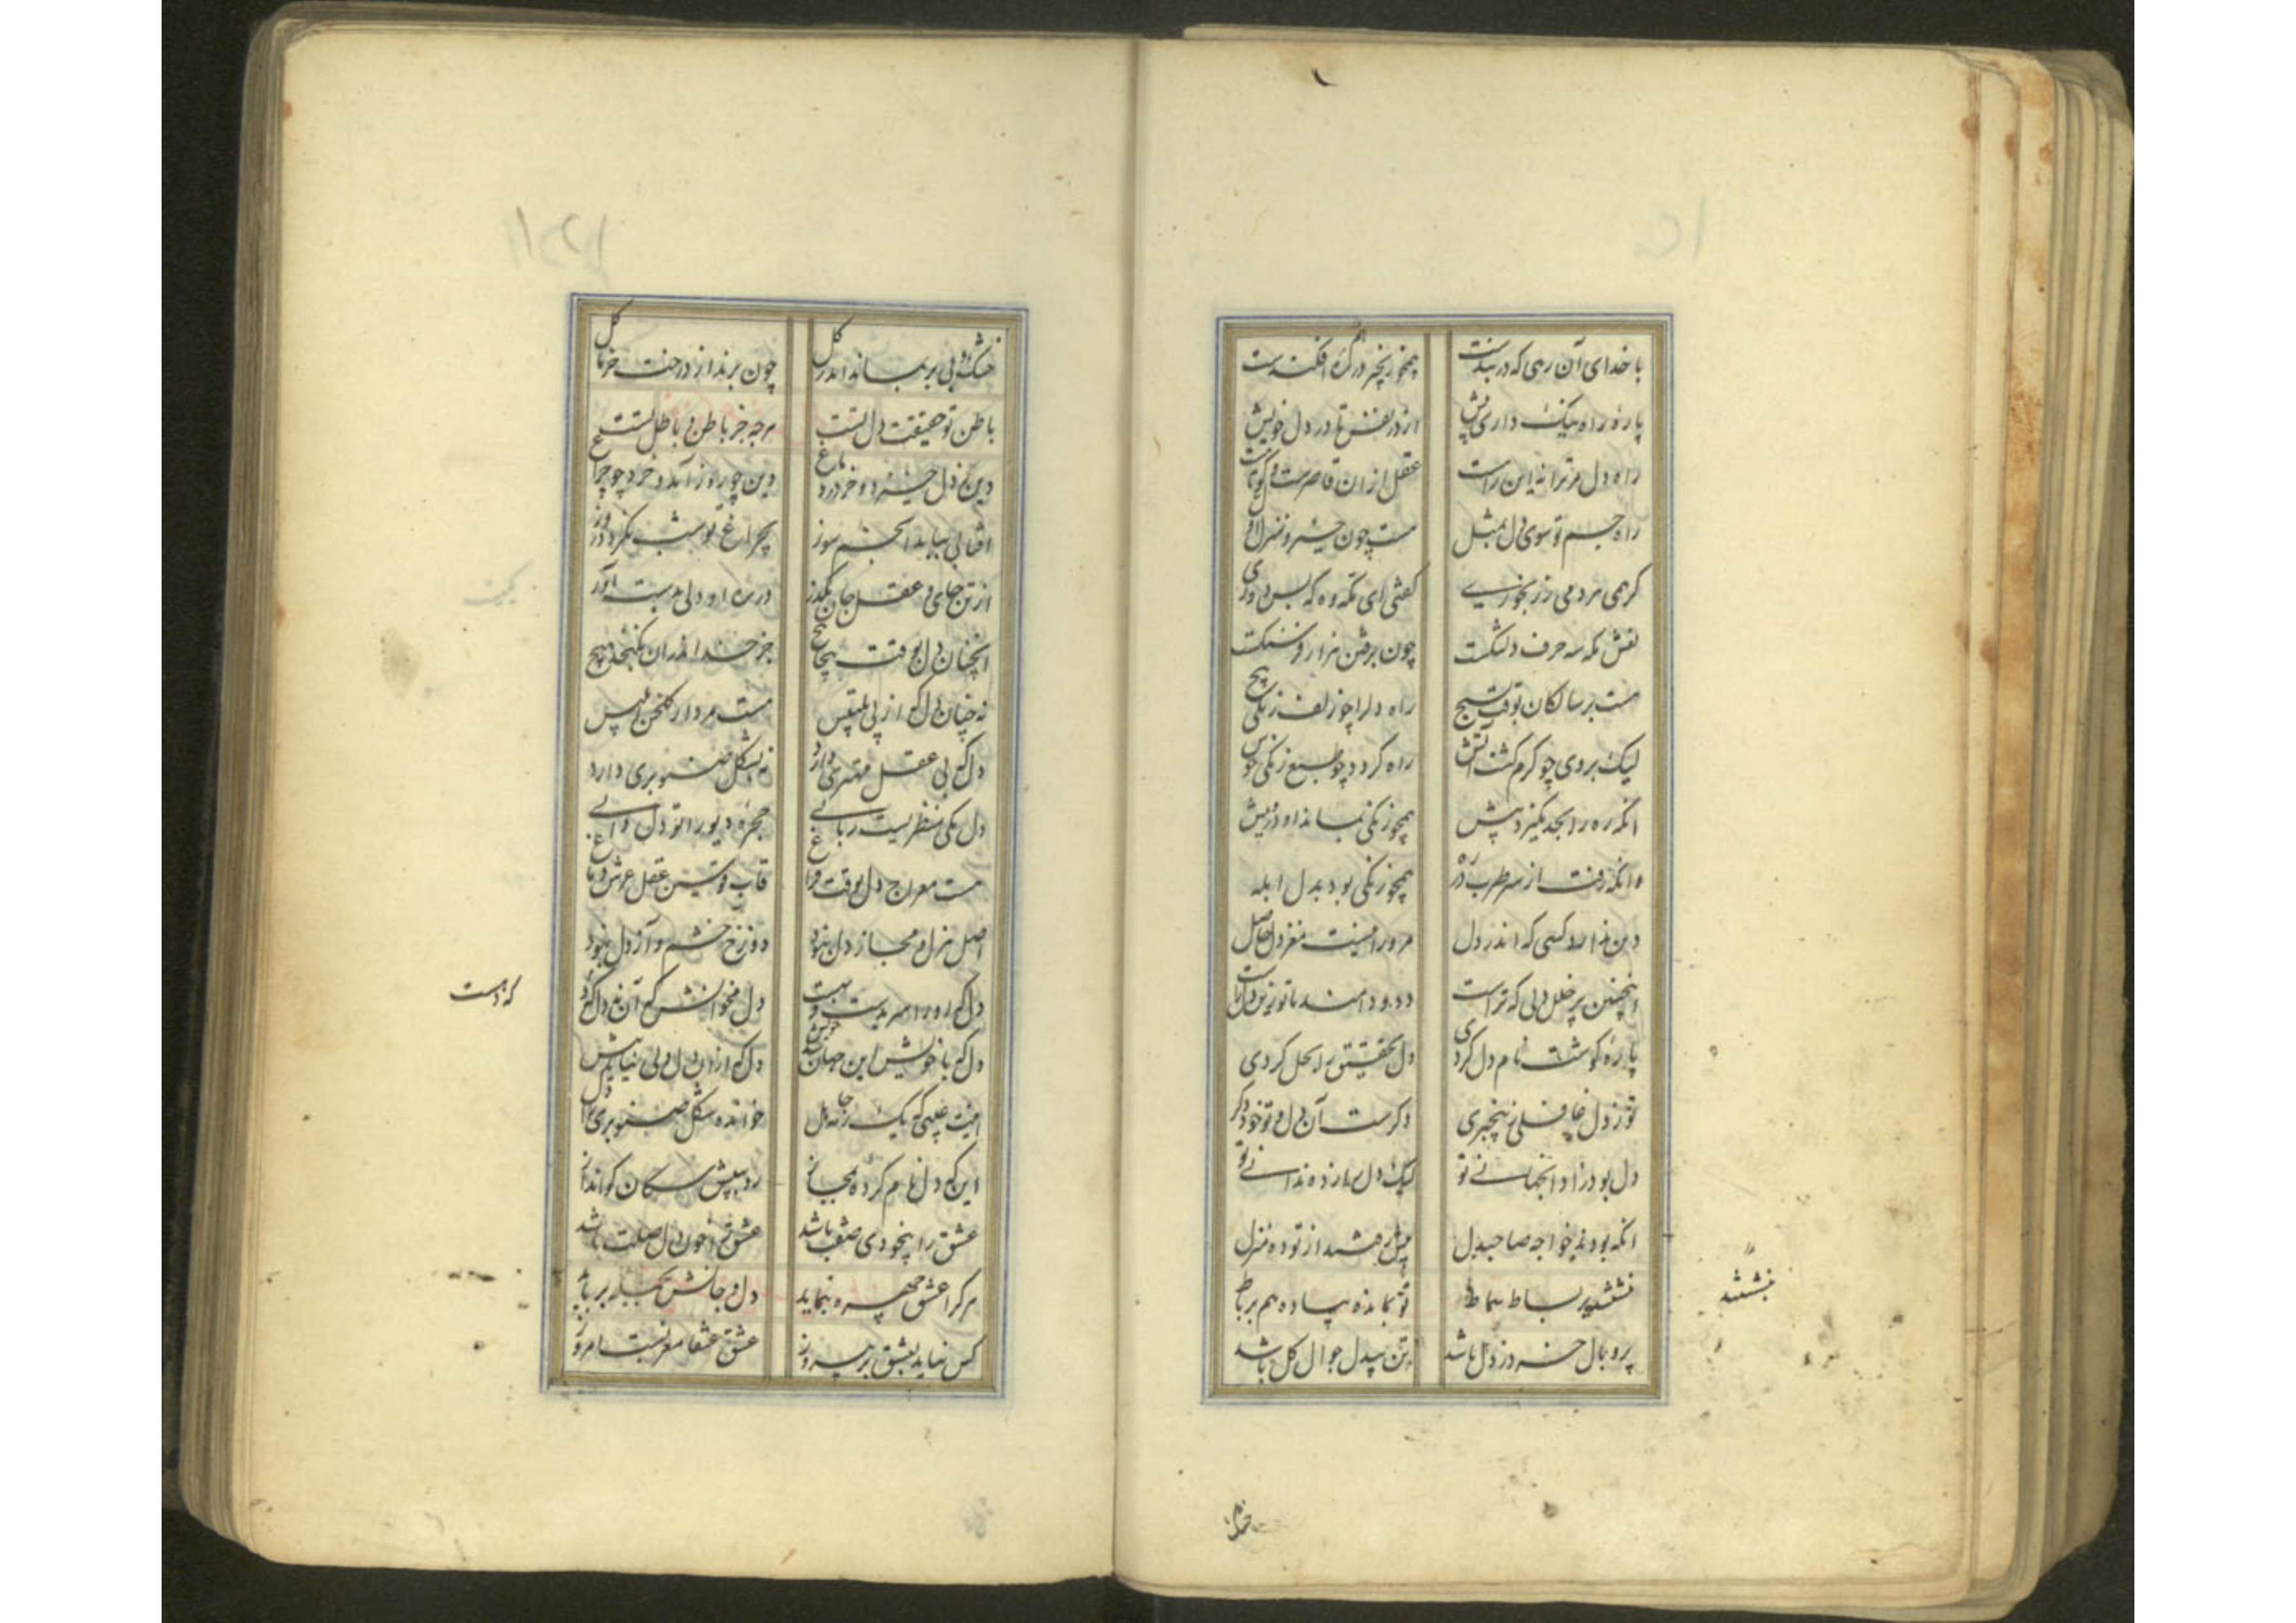 با خدای آن رهی که در بندست همچو زنجیر در هم افکندست
پارهٔ راه نیک داری پیش از در نفس تا در دل خویش
راه دل مر ترا نه این راست عقل ازان قاصرست و کوتاست
راه جسم تو سوی دل بمثل هست چون حشر و نشر
گر همی مردمی زنجوریی گفتی ای نکته وه که بس دوری
نقش نکه سه حرف و لنگست چون برفتن هزار فرسنگست
هست بر سالکان بوقت بسیچ راه دل را چو زلف زنگی پیچ
لیک بروی چو گرم گشت آتش راه گردد چو طبع زنگی خوش
آنکه ره را بجد نگیرد پیش همچو زنگی نماند او درویش
وانکه رفت از سر طرب در ره همچو زنگی بود بدل ابله
دین ندارد کسی که اندر دل مر ورا نیست مغز دل حاصل
اینچنین پر خلل دلی که تراست دد و دامند با تو زین دل راست
پارهٔ گوشت نام دل کردی دل تحقیق را بحل کردی
تو ز دل غافلی و بیخبری دگرست آن دل و تو خود دگری
دل بود زاد آنجهانی تو لیک دل باز ده ندانی تو
آنکه بودند خواجه صاحبدل پیش رفتند از تو ده منزل
بنشستند بر بساط سماط تو بمانده پیاده هم برباط
پر و بال خرد ز دل باشد تن بیدل جوال گل باشد
بنشستند
خشک
خشک و بی بر بماند اندر گل چون برند از درخت خرما گل
باطن تو حقیقت دل تست هرچه جز باطن تو باطل تست
دین ز دل خیزد و خرد ز دماغ دین چو روز آمد و خرد چو چراغ
آفتابی بباید انجم سوز بچراغ تو شب نگردد روز
از تن و جان و عقل و جان بگذر در ره او دلی بدست آور
آنچنان دل که وقت پیچاپیچ جز خدا اندران نگنجد هیچ
نه چنان دل که از پی تلبیس هست مردار گلخن ابلیس
دل که بی عقل مهتری دارد نه دل شکل صنوبری دارد
دل یکی منظریست ربانی حجرهٔ دیو را تو دل دانی
هست معراج دل بوقت فراغ قاب قوسین عقل و عرش دماغ
اصل هزل و مجاز دل نبود دوزخ خشم و آز دل نبود
دل که او را سر بدست و دل مخوانش که آن نه دل
که دست
دل که با خویش این جهان دل که ازان دل دلی نیاید پیش
اینت غبنی که یک رمه جاهل خوانده شکل صنوبری را دل
اینکه دل نام کرده بمجاز رو به پیش سگان کو انداز
عشق را بیخودی صفت باشد عشق در خون دل صلت باشد
هر کرا عشق چهره بنماید دل و جانش بجمله برباید
کس نیاید بعشق بر پیروز عشق عنقا مغربست امروز